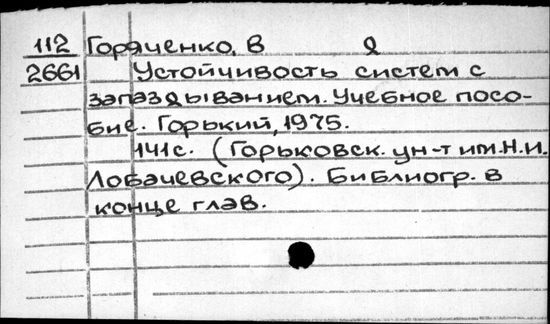 112 Горяченко, В д
2661 Устойчивость систем с
запаздыванием. Учебное посо-
бие. Горький, 1975.
141с. (Горьковск. ун-т им. Н.И.
Лобачевского). Библиогр. в
конце глав.